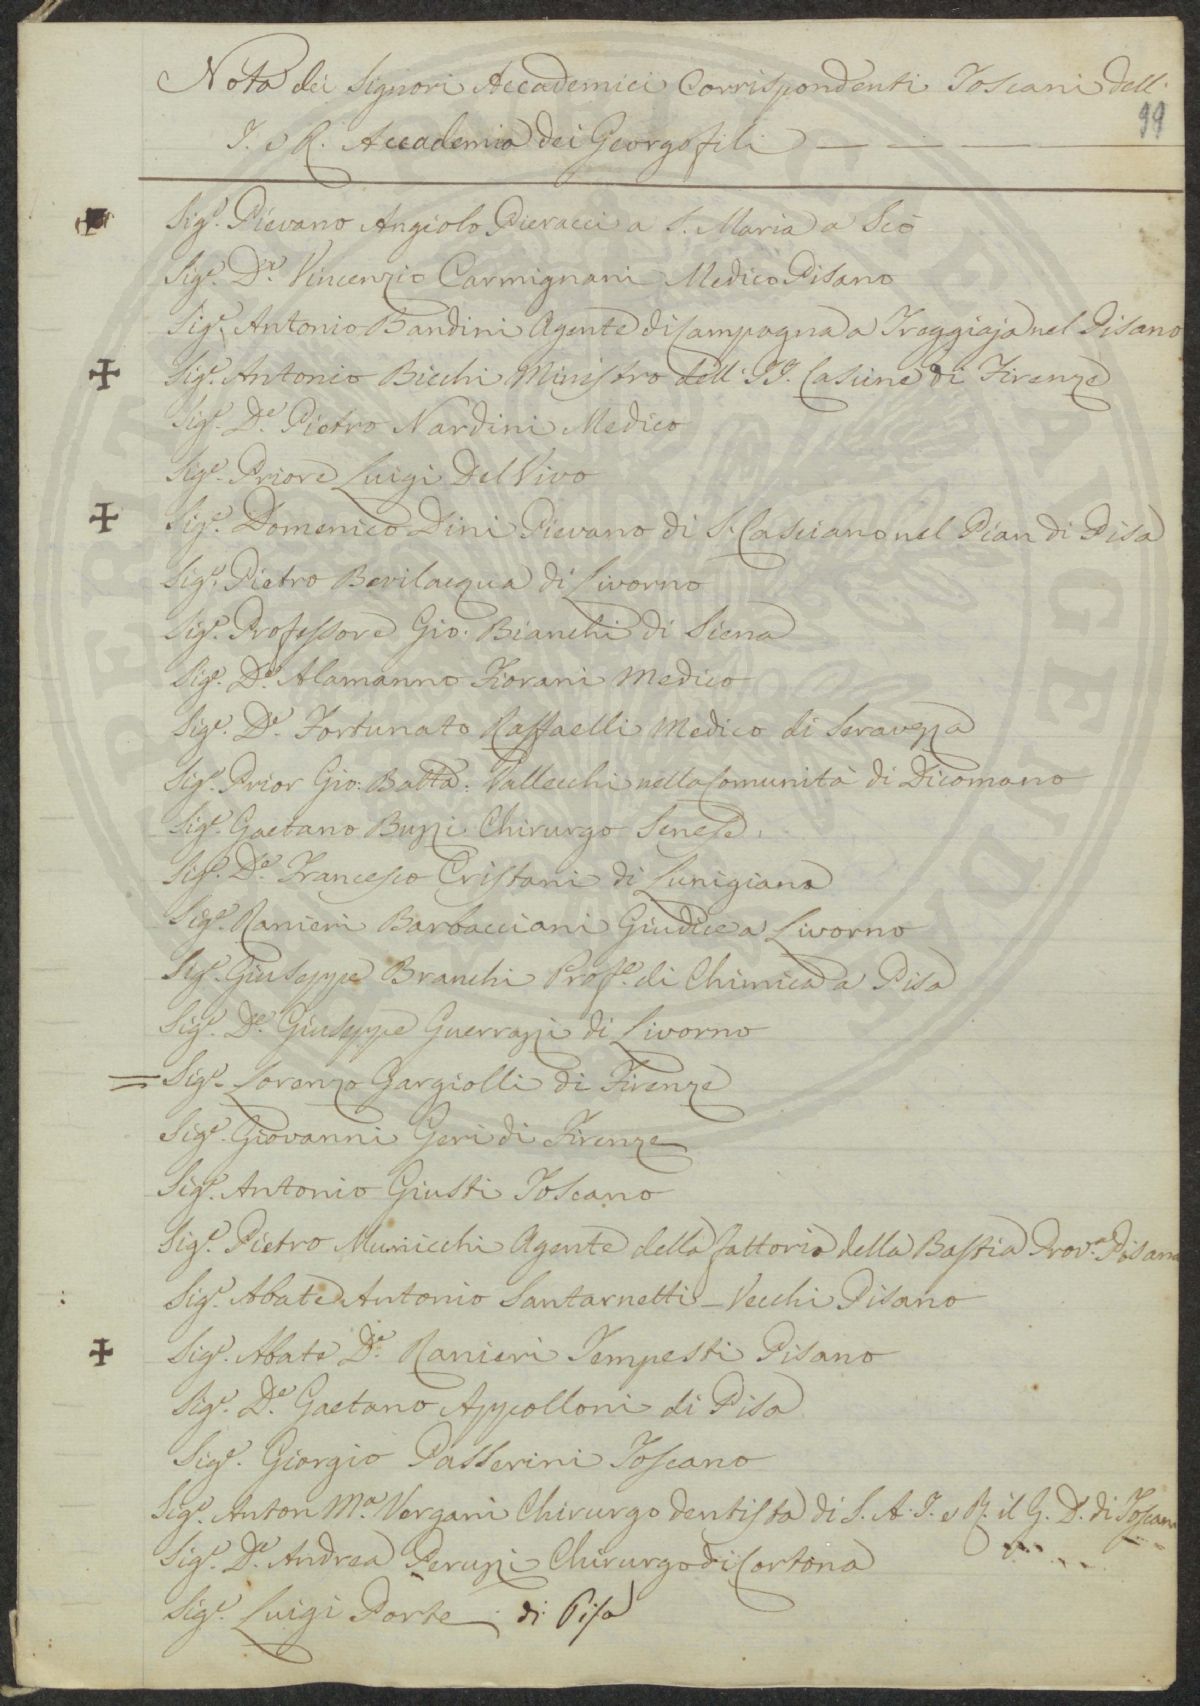 Nota dei Signori Accademici Corrispondenti Toscani dell'
99
I. e R. Accademia dei Georgofili
Sigr. Pievano Angiolo Pieracci a S. Maria a Scò
Sigr. Dr. Vincenzio Carmignani Medico Pisano
Sigr. Antonio Bandini Agente di Campagna a Treggiaja nel Pisano
Sigr. Antonio Bicchi Ministro dell' II. Cascine di Firenze
Sigr. Dr. Pietro Nardini Medico
Sigr. Priore Luigi Del Vivo
Sigr. Domenico Dini Pievano di S. Casciano nel Pian di Pisa
Sigr. Pietro Bevilacqua di Livorno
Sigr. Professore Gio: Bianchi di Siena
Sigr. Dr. Alamanno Fiorani Medico
Sigr. Dr. Fortunato Raffaelli Medico di Seravezza
Sigr. Prior Gio: Batta: Vallecchi nella Comunità di Dicomano
Sigr. Gaetano Buzzi Chirurgo Senese.
Sigr. Dr. Francesco Cristani di Lunigiana
Sigr. Ranieri Barbacciani Giudice a Livorno
Sigr. Giuseppe Branchi Profe. di Chimica a Pisa
Sigr. Dr. Giuseppe Guerrazzi di Livorno
= Sigr. Lorenzo Gargiolli di Firenze
Sigr. Giovanni Geri di Firenze
Sigr. Antonio Giusti Toscano
Sigr. Pietro Municchi Agente della fattoria della Bastia Prov.a Pisana
Sigr. Abate Antonio Santarnetti - Vecchi Pisano
Sigr. Abate Dr. Ranieri Tempesti Pisano
Sigr. Dr. Gaetano Appolloni di Pisa
Sigr. Giorgio Passerini Toscano
Sigr. Anton Ma. Vergani Chirurgo dentista di S. A. I. e R. il G. D. di Toscana
Sigr. Dr. Andrea Peruzzi Chirurgo di Cortona
Sigr. Luigi Porte di Pisa